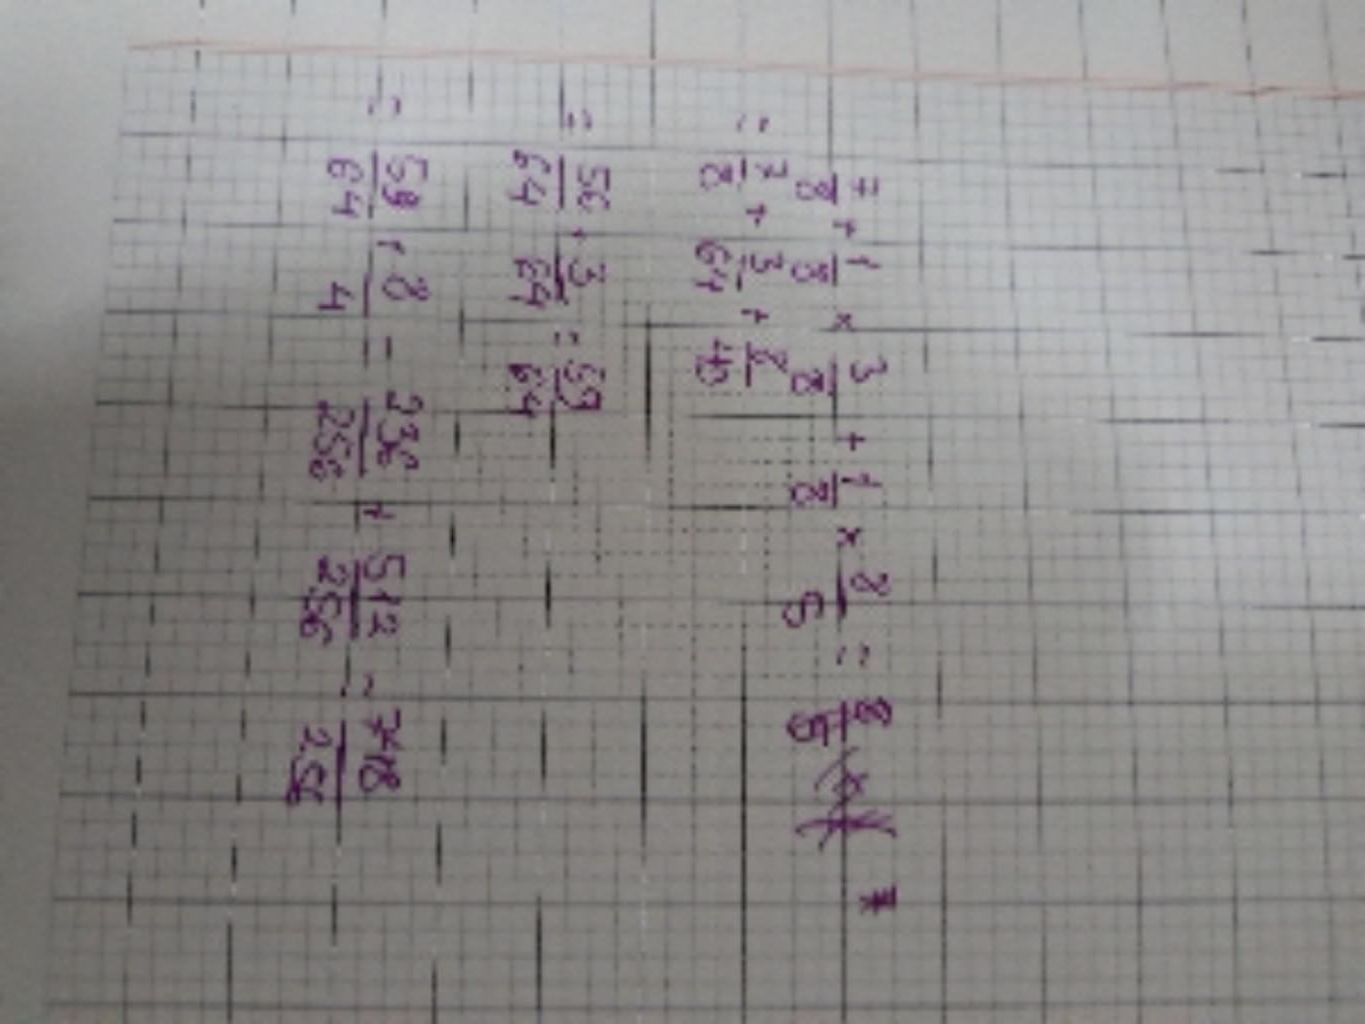 7/8 + 1/8 × 3/8 + 1/8 × 8/5 = 8/5
= 7/8 + 3/64 + 8/40
= 56/64 + 3/64 = 59/64
= 59/64 + 8/4 = 236/256 + 512/256 = 748/256